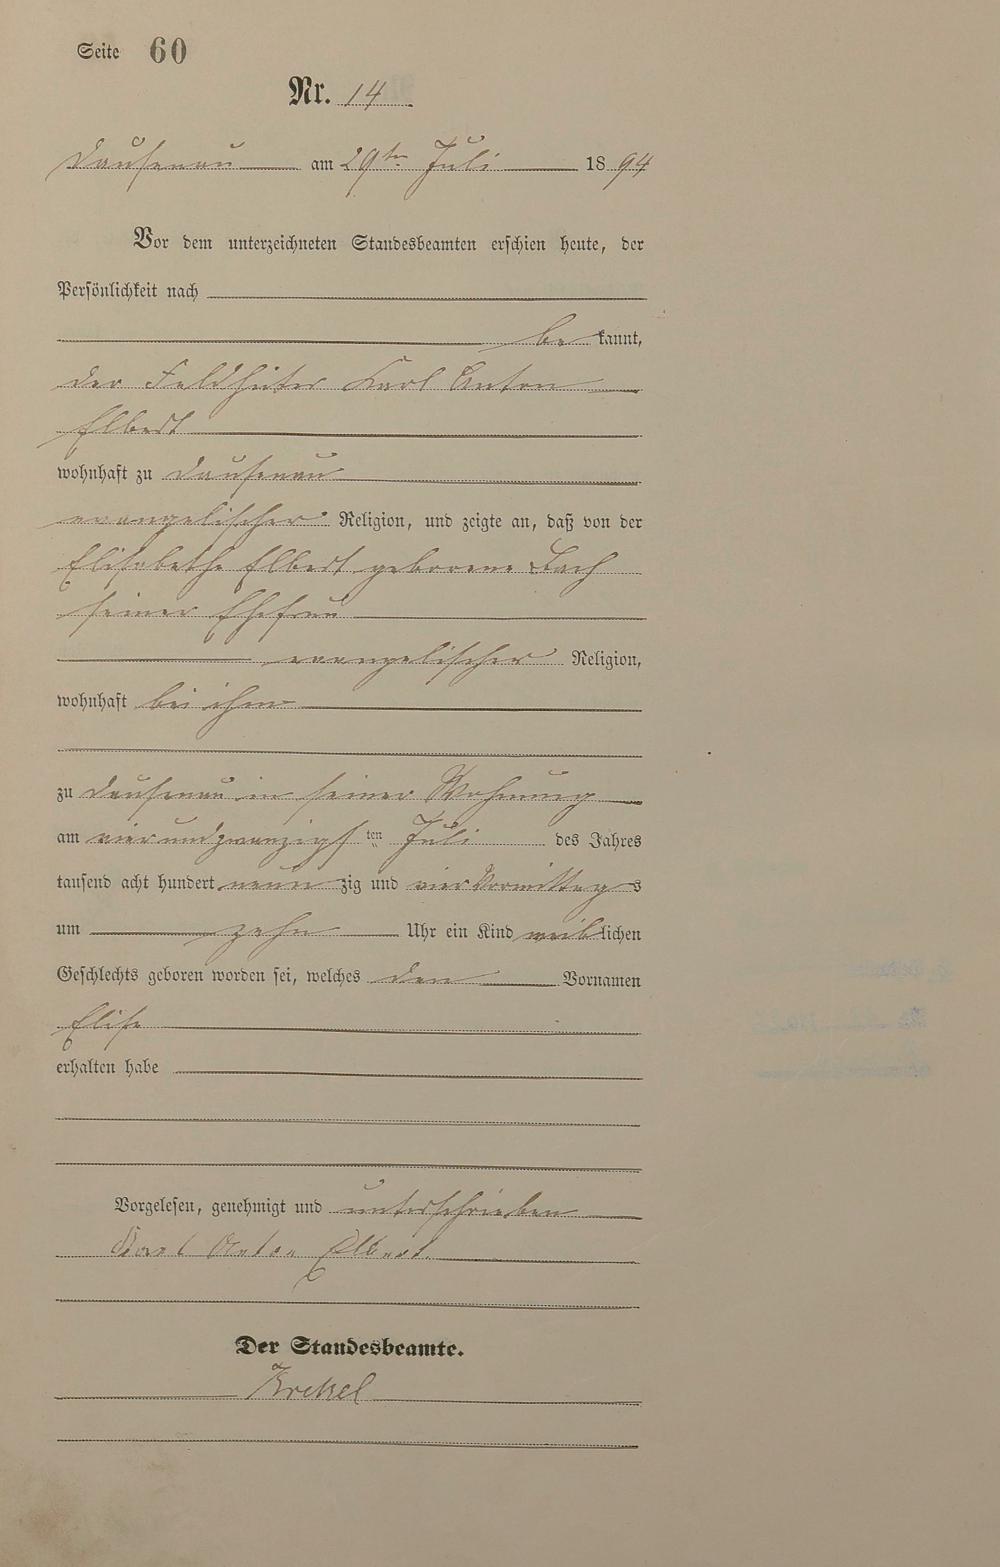 Seite 60
Nr. 14
Dausenau am 29ten Juli 1894
Vor dem unterzeichneten Standesbeamten erschien heute, der
Persönlichkeit nach
be kannt,
der Feldhüter Karl Anton
Elbert
wohnhaft zu Dausenau
evangelischer Religion, und zeigte an, daß von der
Elisabethe Elbert geborene Bach
seiner Ehefrau
evangelischer Religion,
wohnhaft bei ihm
zu Dausenau in seiner Wohnung
am vierundzwanzigsten Juli des Jahres
tausend acht hundert neunzig und vier Vormittags
um zehn Uhr ein Kind weiblichen
Geschlechts geboren worden sei, welches den Vornamen
Elise
erhalten habe
Vorgelesen, genehmigt und unterschrieben
Karl Anton Elbert.
Der Standesbeamte.